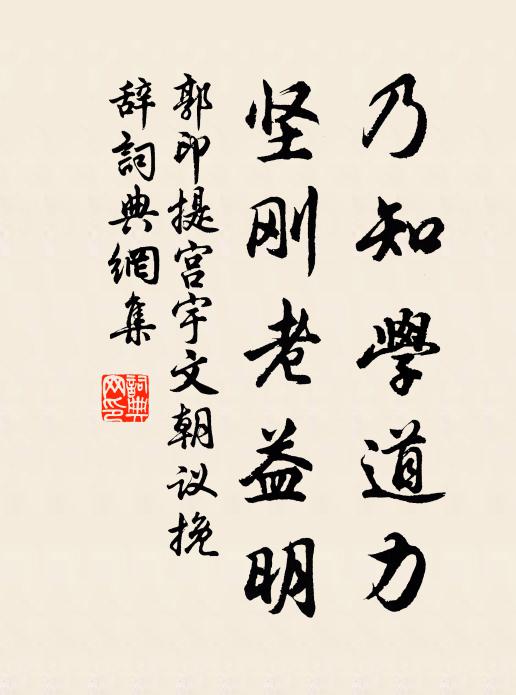 乃知學道力
坚刚老益明
郭印提宫宇文朝议挽
辞詞典網集
詞典網印